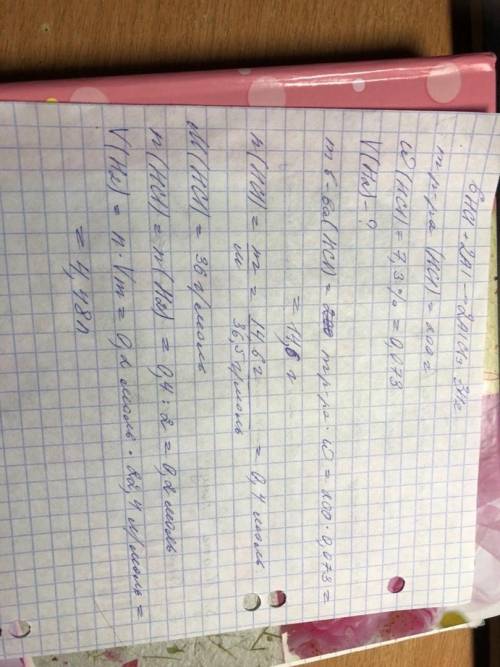 6HCl + 2Al → 2AlCl3 3H2
m р-ра (HCl) = 200 г
ω (HCl) = 7,3% = 0,073
V(H2) - ?
m в-ва (HCl) = m р-ра · ω = 200 · 0,073 =
= 14,6 г
n (HCl) = m/M = 14,6 г / 36,5 г/моль = 0,4 моль
M (HCl) = 36 г/моль
n (HCl) = n (H2) = 0,4 : 2 = 0,2 моль
V(H2) = n · Vm = 0,2 моль · 22,4 л/моль =
= 4,48 л